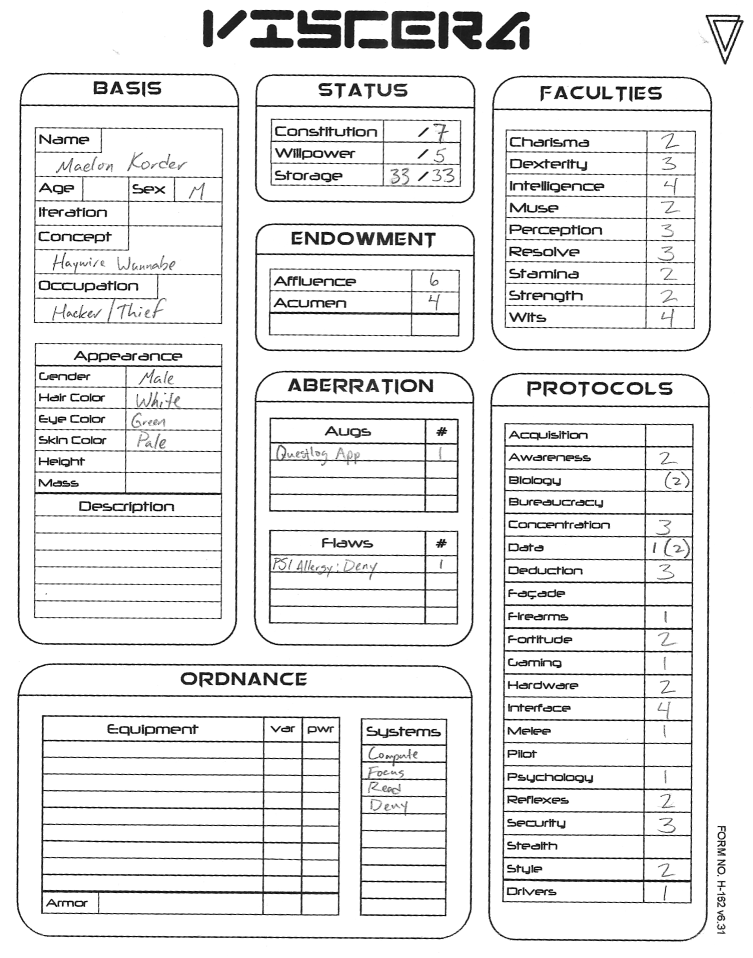 VISCERA
BASIS
Name
Maelon Korder
Age Sex M
Iteration
Concept
Haywire Wannabe
Occupation
Hacker/Thief
Appearance
Gender Male
Hair Color White
Eye Color Green
Skin Color Pale
Height
Mass
Description
STATUS
Constitution / 7
Willpower / 5
Storage 33 / 33
ENDOWMENT
Affluence 6
Acumen 4
ABERRATION
Augs #
Questlog App 1
Flaws #
PSI Allergy: Deny 1
FACULTIES
Charisma 2
Dexterity 3
Intelligence 4
Muse 2
Perception 3
Resolve 3
Stamina 2
Strength 2
Wits 4
PROTOCOLS
Acquisition
Awareness 2
Biology (2)
Bureaucracy
Concentration 3
Data 1 (2)
Deduction 3
Façade
Firearms 1
Fortitude 2
Gaming 1
Hardware 2
Interface 4
Melee 1
Pilot
Psychology 1
Reflexes 2
Security 3
Stealth
Style 2
Drivers 1
ORDNANCE
Equipment var pwr
Armor
Systems
Compute
Focus
Read
Deny
FORM NO. H-162 v6.31